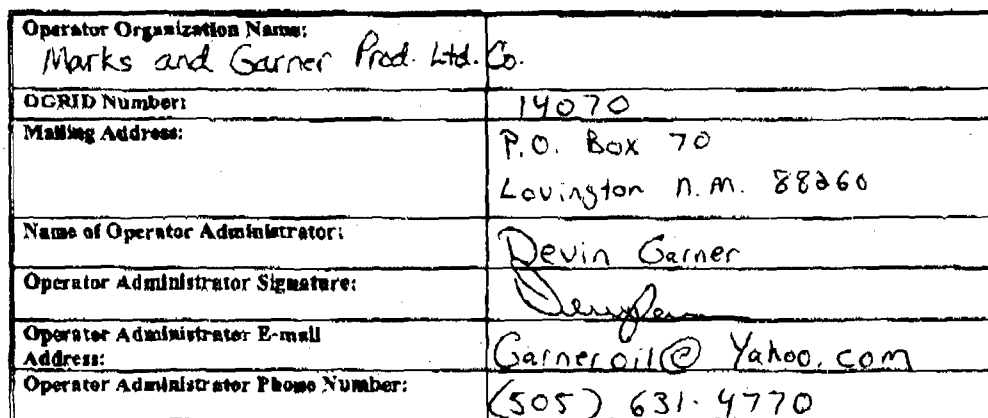 Operator Organization Name:
Marks and Garner Prod. Ltd. Co.
OGRID Number: 14070
Mailing Address: P.O. Box 70
Lovington N.M. 88260
Name of Operator Administrator: Devin Garner
Operator Administrator Signature:
Operator Administrator E-mail
Address: Garneroil@Yahoo.com
Operator Administrator Phone Number: (505) 631-4770